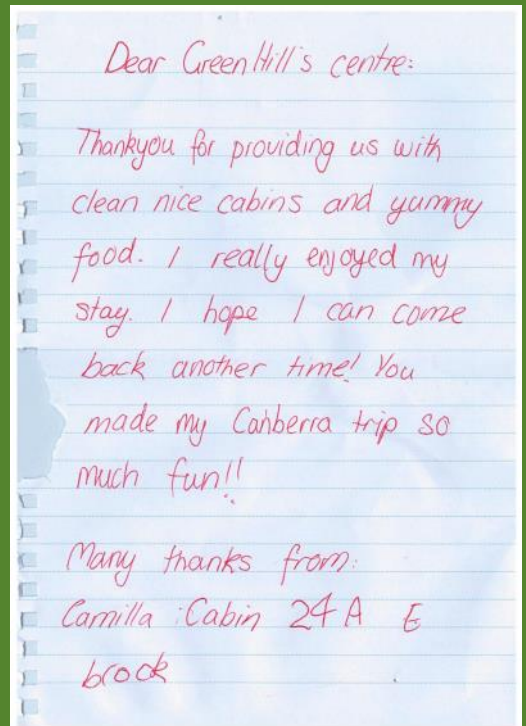 Dear GreenHill's centre:
Thankyou for providing us with
clean nice cabins and yummy
food. I really enjoyed my
stay. I hope I can come
back another time! You
made my Canberra trip so
much fun!!
Many thanks from:
Camilla :Cabin 24A E
brock